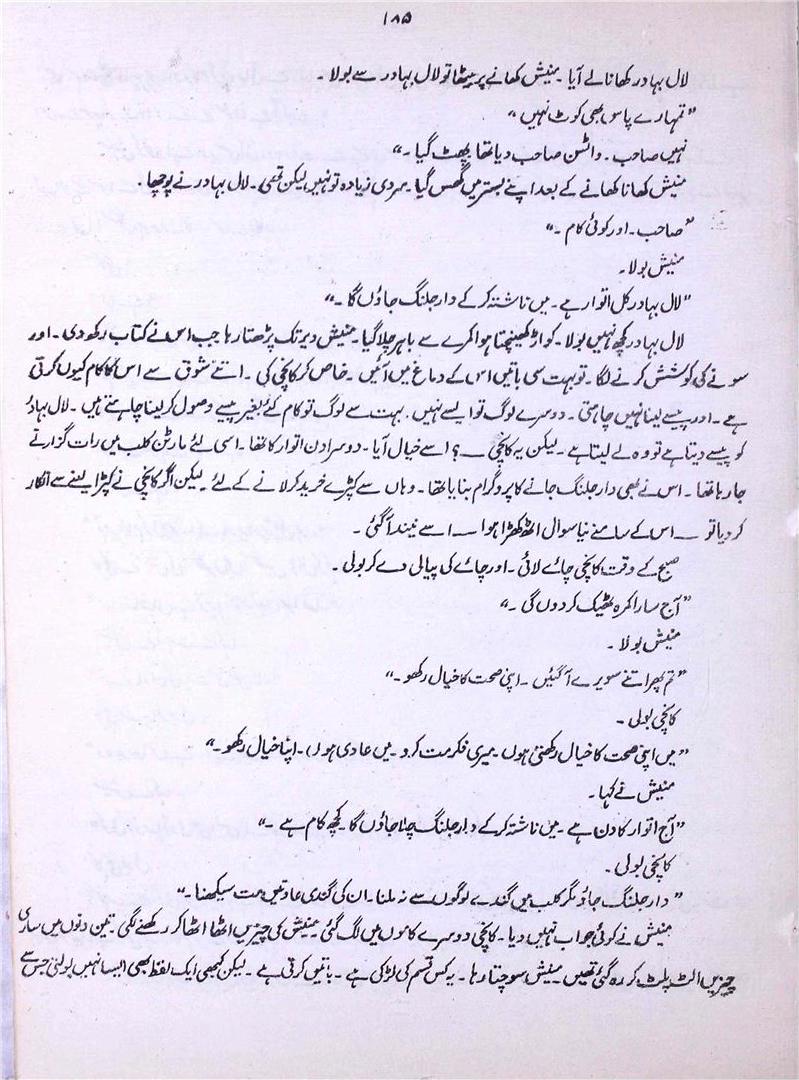 ۱۸۵
لال بہادر کھانا لے آیا۔ منیش کھانے پر بیٹھا تو لال بہادر سے بولا۔
”تمہارے پاس بھی کوٹ نہیں“
نہیں صاحب۔ واٹسن صاحب دیا تھا پھٹ گیا۔“
منیش کھانا کھانے کے بعد اپنے بستر میں گھس گیا۔ سردی زیادہ تو نہیں لیکن تھی۔ لال بہادر نے پوچھا
”صاحب۔ اور کوئی کام۔“
منیش بولا۔
”لال بہادر کل اتوار ہے۔ میں ناشتہ کر کے دارجلنگ جاؤں گا۔“
لال بہادر کچھ نہیں بولا۔ کواڑ کھینچتا ہوا کمرے سے باہر چلا گیا۔ منیش دیر تک پڑھتا رہا جب اس نے کتاب رکھ دی۔ اور
سونے کی کوشش کرنے لگا۔ تو بہت سی باتیں اس کے دماغ میں آئیں۔ خاص کر کانچی کی۔ اتنے شوق سے اس کا کام کیوں کرتی
ہے۔ اور پیسے لینا نہیں چاہتی۔ دوسرے لوگ تو ایسے نہیں۔ بہت سے لوگ تو کام کے بغیر پیسے وصول کر لینا چاہتے ہیں۔ لال بہادر
کو پیسے دیتا ہے تو وہ لے لیتا ہے۔ لیکن یہ کانچی ــ؟ اسے خیال آیا۔ دوسرا دن اتوار کا تھا۔ اسی لئے مارٹن کلب میں رات گزارنے
جا رہا تھا۔ اس نے بھی دارجلنگ جانے کا پروگرام بنایا تھا۔ وہاں سے کپڑے خرید کر لانے کے لئے۔ لیکن اگر کانچی نے کپڑا لینے سے انکار
کر دیا تو ــ اس کے سامنے نیا سوال اٹھ کھڑا ہوا ــ اسے نیند آ گئی۔
صبح کے وقت کانچی چائے لائی۔ اور چائے کی پیالی دے کر بولی۔
”آج سارا کمرہ ٹھیک کر دوں گی۔“
منیش بولا۔
”تم پھر اتنے سویرے آ گئیں۔ اپنی صحت کا خیال رکھو۔“
کانچی بولی۔
”میں اپنی صحت کا خیال رکھتی ہوں۔ میری فکر مت کرو۔ میں عادی ہوں۔ اپنا خیال رکھو۔“
منیش نے کہا۔
”آج اتوار کا دن ہے۔ میں ناشتہ کر کے دارجلنگ چلا جاؤں گا۔ کچھ کام ہے۔“
کانچی بولی۔
”دارجلنگ جاؤ مگر کلب میں گندے لوگوں سے نہ ملنا۔ ان کی گندی عادتیں مت سیکھنا۔“
منیش نے کوئی جواب نہیں دیا۔ کانچی دوسرے کاموں میں لگ گئی۔ منیش کی چیزیں اٹھا اٹھا کر رکھنے لگی۔ تین دنوں میں ساری
چیزیں الٹ پلٹ کر رہ گئی تھیں۔ منیش سوچتا رہا۔ یہ کس قسم کی لڑکی ہے۔ باتیں کرتی ہے۔ لیکن کبھی ایک لفظ بھی ایسا نہیں بولتی جس سے